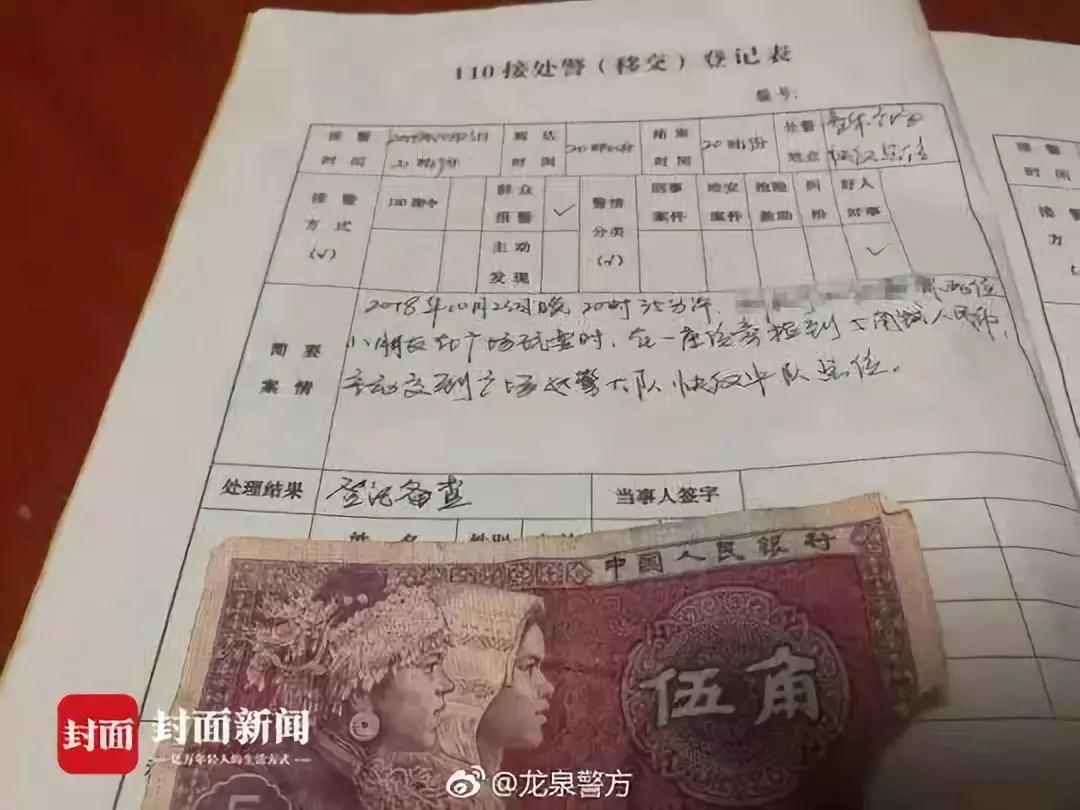 110接处警（移交）登记表
编号：
接警时间 20时 分 到达时间 20时 分 结束时间 20时 分 处警地点
接警
时间
接警方式（√） 110指令 群众报警 ✓ 警情分类（√） 刑事案件 治安案件 抢险救助 纠纷 好人好事
主动发现 ✓
接警
方
2018年10月25日晚20时35分许，
小朋友在广场玩耍时，在一座位旁捡到 人民币，
简要案情 主动交到广场 警大队快反中队
处理结果 登记备查 当事人签字
姓名 性别
中国人民银行
伍角
5
封面 封面新闻
亿万年轻人的生活方式
@龙泉警方